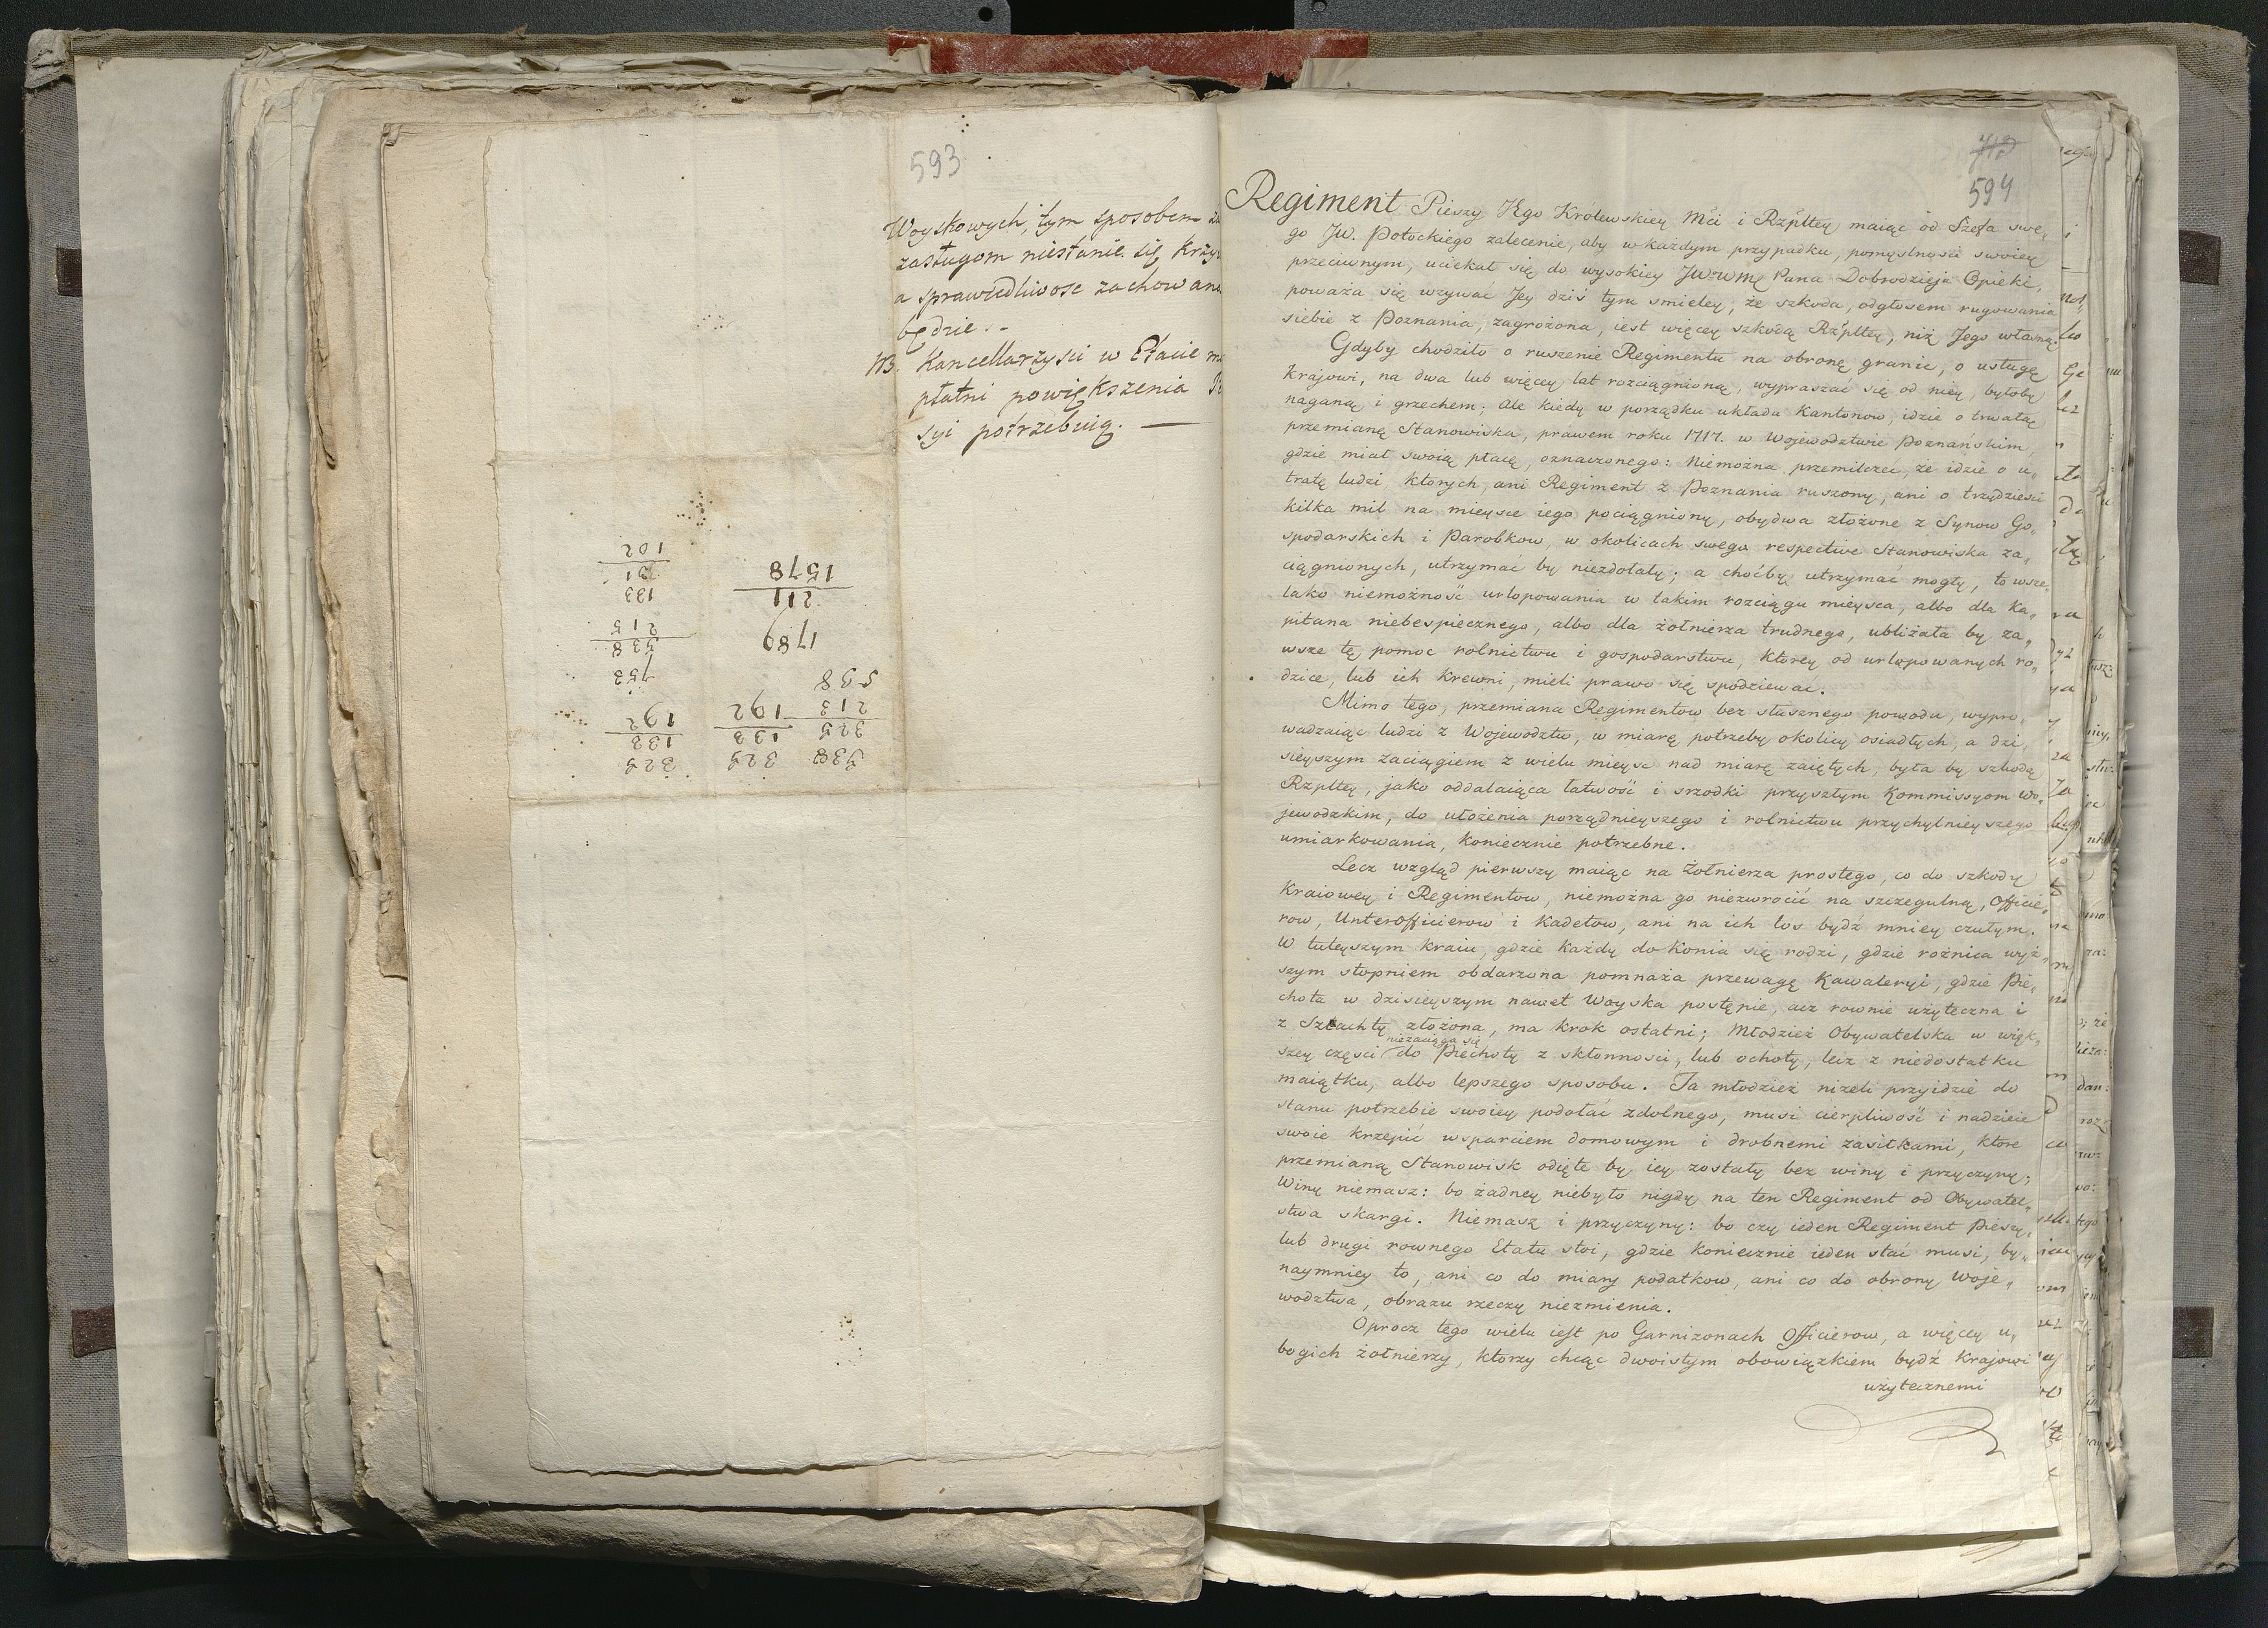 593
Woyskowych, tym sposobem
zasługom niestanie się krzy
a sprawiedliwosc zachowana
będzie. -
NB. Kancellarzysci w Etacie
płatni powiększenia
syi potrzebuią. —
325 325 538
133 133 325
192 192 213
598
753
538 1789
215 211
133 1578
31
102
594
Regiment Pieszy JKgo Królewskiey Mći i Rzpltey maiąc od Szefa swe„
go JW. Potockiego zalecenie, aby w każdym przypadku, pomyslnosci swoiey
przeciwnym, uciekał się do wysokiey JWWM Pana Dobrodzieja Opieki,
poważa się wzywać Jey dziś tym smieley, że szkoda, odgłosem rugowania
siebie z Poznania, zagrożona, iest więcey szkodą Rzpltey, niż Jego własną.
Gdyby chodziło o ruszenie Regimentu na obronę granic, o usługę
Krajowi, na dwa lub więcey lat rozciągnioną, wypraszać się od niey, byłoby
naganą i grzechem; Ale kiedy w porządku układu Kantonow, idzie o trwałą
przemianę Stanowiska, prawem roku 1717. w Województwie Poznańskim,
gdzie miał swoią płacę, oznaczonego: Niemożna przemilczeć, że idzie o u„
tratę ludzi, ktorych, ani Regiment z Poznania ruszony, ani o trzydzieści
kilka mil na mieysce iego pociągniony, obydwa złożone z Synow Go„
spodarskich i Parobkow, w okolicach swego respective Stanowiska za„
ciągnionych, utrzymać by niezdołały; a choćby utrzymać mogły, to wsze„
lako niemożność urlopowania w takim rozciągu mieysca, albo dla Ka„
pitana niebespiecznego, albo dla żołnierza trudnego, ubliżała by za„
wsze tę pomoc rolnictwu i gospodarstwu, ktorey od urlopowanych ro„
dzice, lub ich krewni, mieli prawo się spodziewać.
Mimo tego, przemiana Regimentow bez słusznego powodu, wypro„
wadzaiąc ludzi z Wojewodztw, w miarę potrzeby okolicy osiadłych, a dzi„
sieyszym zaciągiem z wielu mieysc nad miarę zaiętych, była by szkodą
Rzpltey, jako oddalaiąca łatwość i srzodki przyszłym Kommissyom Wo„
jewodzkim, do ułożenia porządnieyszego i rolnictwu przychylnieyszego
umiarkowania, koniecznie potrzebne.
Lecz wzgląd pierwszy maiąc na żołnierza prostego, co do szkody
Kraiowey i Regimentow, niemożna go niezwrócić na szczegulną, Officie„
row, Unterofficierow i Kadetow, ani na ich los bydź mniey czułym.
W tuteyszym kraiu, gdzie każdy do konia się rodzi, gdzie rożnica wyż„
szym stopniem obdarzona pomnaża przewagę Kawaleryi, gdzie Pie„
chota w dzisieyszym nawet Woyska postępie, acz rownie użyteczna i
z Szlachty złożona, ma krok ostatni; Młodzież Obywatelska w więk„
niezaciąga się
szey części do Piechoty z skłonnosci, lub ochoty, lecz z niedostatku
maiątku, albo lepszego sposobu. Ta młodzież nizeli przyidzie do
stanu potrzebie swoiey podołać zdolnego, musi cierpliwość i nadzieie
swoie krzepić wsparciem domowym i drobnemi zasiłkami, ktore
przemianą Stanowisk odięte by iey zostały bez winy i przyczyny;
Winy niemasz: bo żadney niebyło nigdy na ten Regiment od Obywatel„
stwa skargi. Niemasz i przyczyny: bo czy ieden Regiment Pieszy,
lub drugi rownego Etatu stoi, gdzie koniecznie ieden stać musi, by„
naymniey to, ani co do miary podatkow, ani co do obrony Woje„
wodztwa, obrazu rzeczy niezmienia.
Oprocz tego wielu iest po Garnizonach Officierow, a więcey u„
bogich żołnierzy, ktorzy chcąc dwoistym obowiązkiem bydź Krajowi
użytecznemi